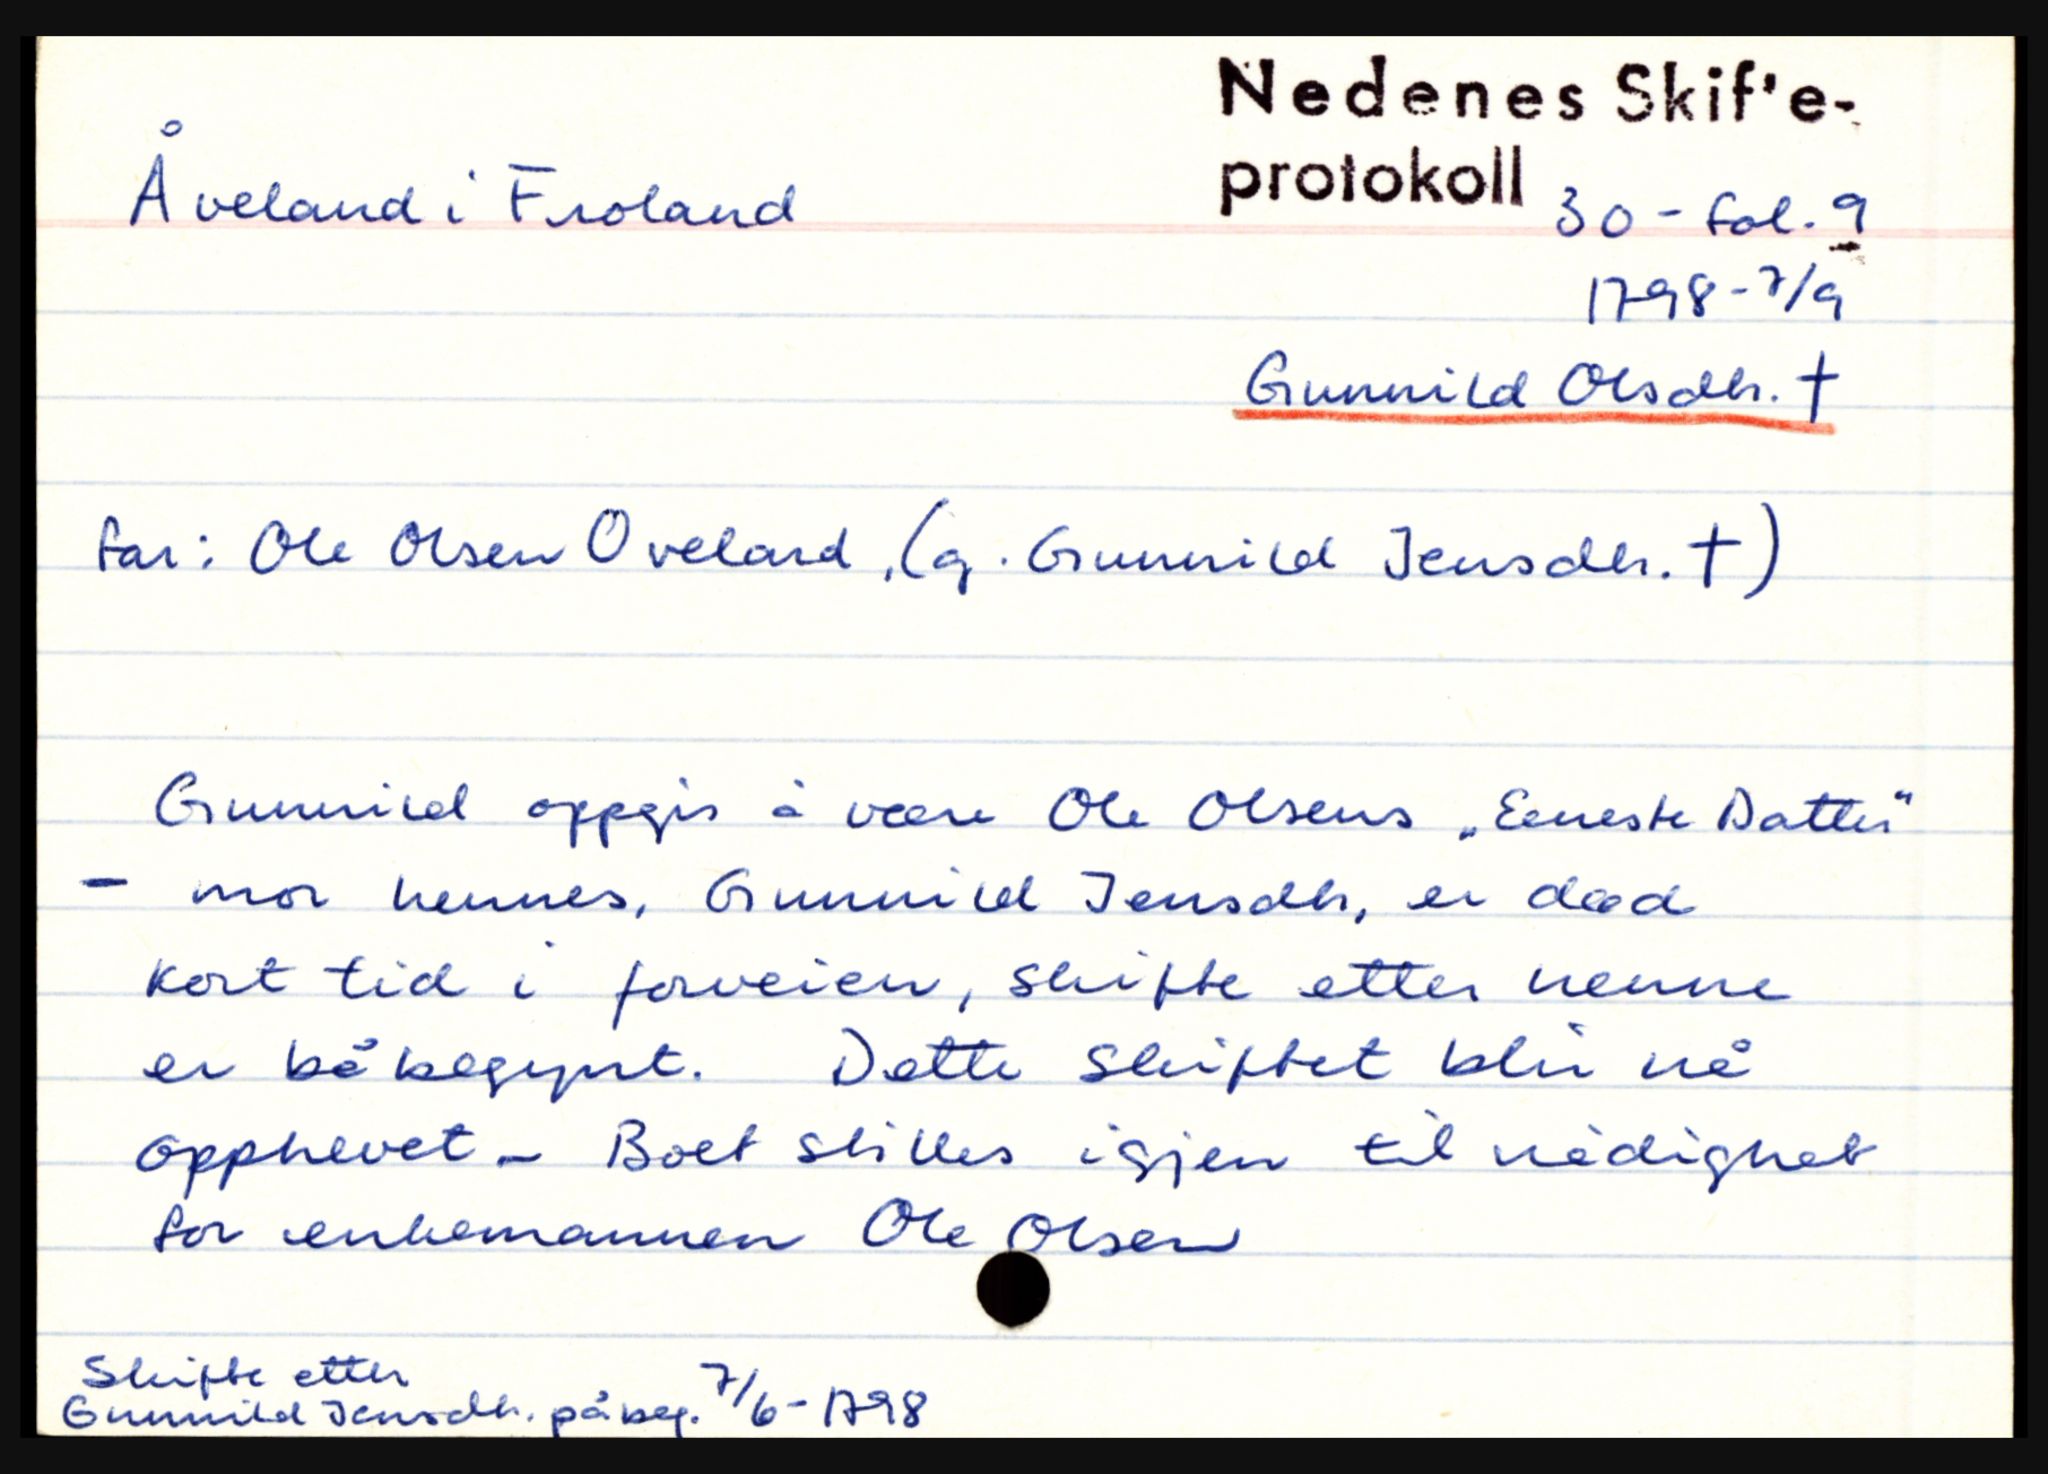 Nedenes Skif'e-
protokoll
Åveland i Froland
30 - fol. 9
1798 - 7/9
Gunnild Olsdtr. †
far: Ole Olsen Öveland, (g. Gunnild Jensdtr. †)
Gunnild oppgis å være Ole Olsens „Eeneste Datter“
- mor hennes, Gunnild Jensdtr, er død
kort tid i forveien, skifte etter henne
er båbegynt. Dette skiftet blir nå
opphevet - Boet stilles igjen til rådighet
for enkemannen Ole Olsen
Skifte etter
Gunnild Jensdtr. påbeg. 7/6 - 1798